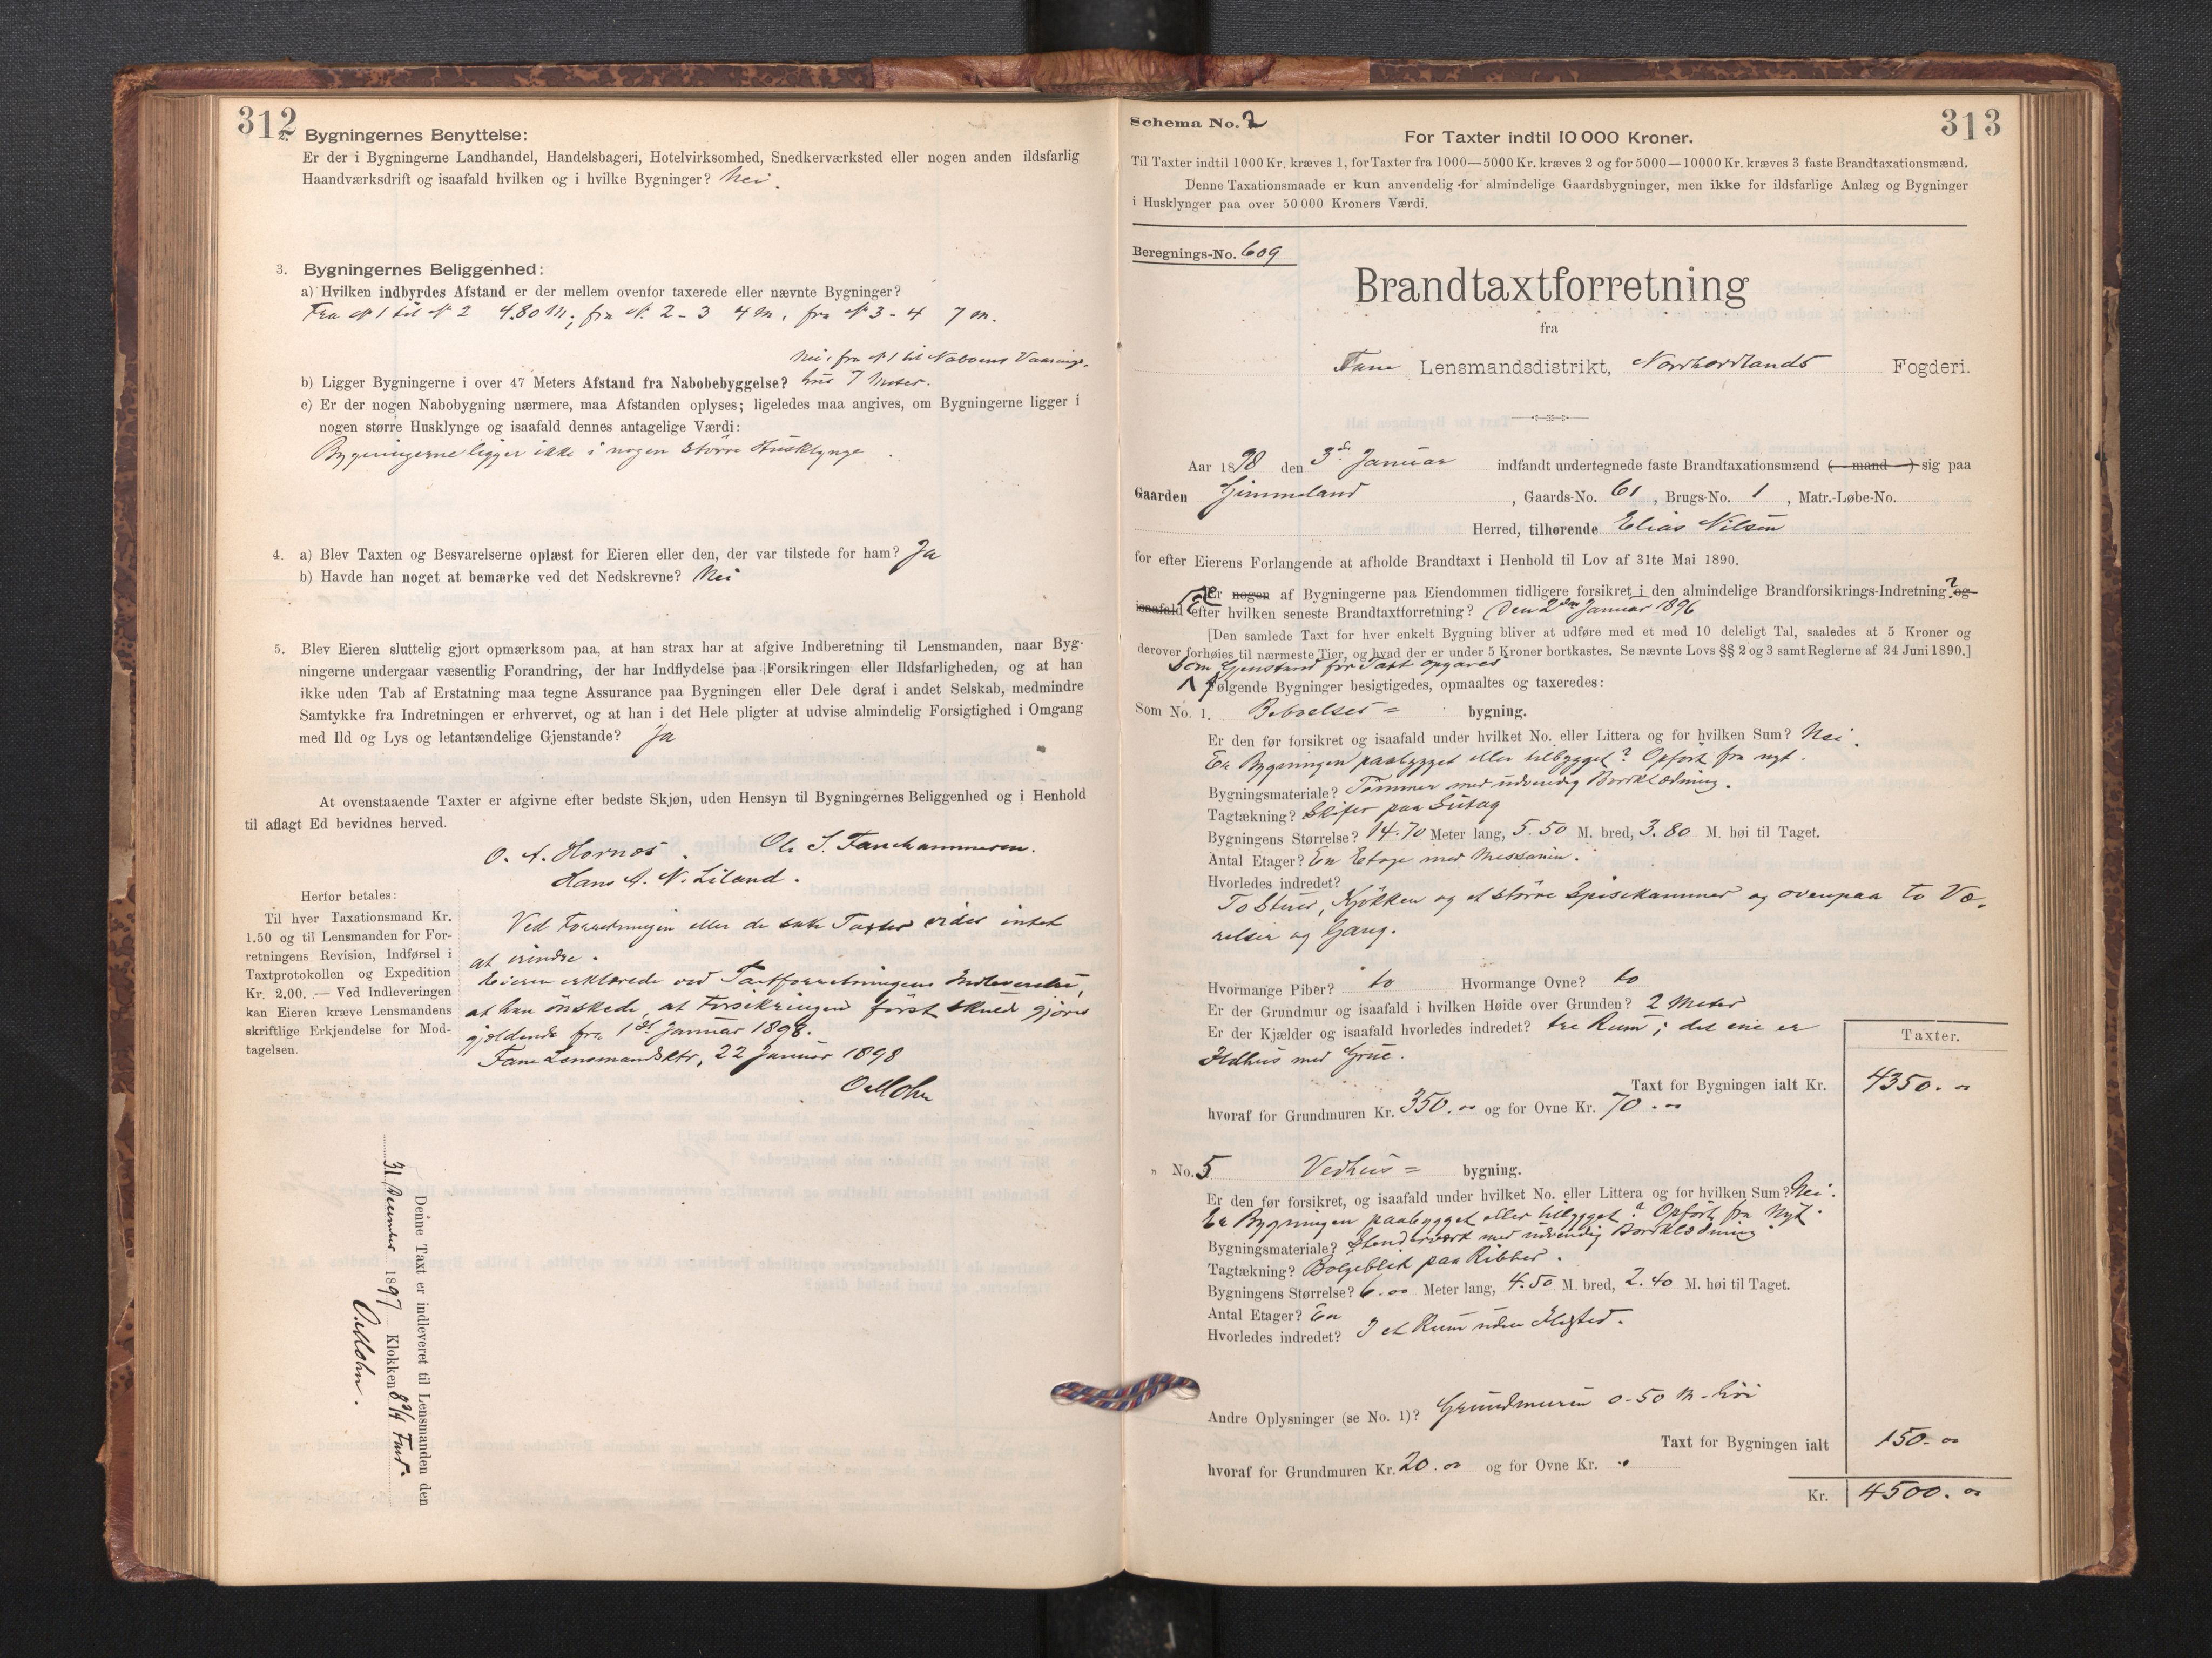 312
2. Bygningernes Benyttelse:
Er der i Bygningerne Landhandel, Handelsbageri, Hotelvirksomhed, Snedkerværksted eller nogen anden ildsfarlig
Haandværksdrift og isaafald hvilken og i hvilke Bygninger? Nei.
3. Bygningernes Beliggenhed:
a) Hvilken indbyrdes Afstand er der mellem ovenfor taxerede eller nævnte Bygninger?
Fra № 1 til № 2 4.80 M., fra №. 2 - 3 4 M, fra № 3 - 4 7 m.
Nei, fra № 1 til Naboens Vaanings-
b) Ligger Bygningerne i over 47 Meters Afstand fra Nabobebyggelse? hus 7 Meter.
c) Er der nogen Nabobygning nærmere, maa Afstanden oplyses; ligeledes maa angives, om Bygningerne ligger i
nogen større Husklynge og isaafald dennes antagelige Værdi:
Bygningerne ligger ikke i nogen större Husklynge.
4. a) Blev Taxten og Besvarelserne oplæst for Eieren eller den, der var tilstede for ham? Ja
b) Havde han noget at bemærke ved det Nedskrevne? Nei
5. Blev Eieren sluttelig gjort opmærksom paa, at han strax har at afgive Indberetning til Lensmanden, naar Byg-
ningerne undergaar væsentlig Forandring, der har Indflydelse paa Forsikringen eller Ildsfarligheden, og at han
ikke uden Tab af Erstatning maa tegne Assurance paa Bygningen eller Dele deraf i andet Selskab, medmindre
Samtykke fra Indretningen er erhvervet, og at han i det Hele pligter at udvise almindelig Forsigtighed i Omgang
med Ild og Lys og letantændelige Gjenstande? Ja
At ovenstaaende Taxter er afgivne efter bedste Skjøn, uden Hensyn til Bygningernes Beliggenhed og i Henhold
til aflagt Ed bevidnes herved.
O. A. Hornæs. Ole S. Fanehammeren.
Hans A. N. Liland.
Herfor betales:
Til hver Taxationsmand Kr.
1.50 og til Lensmanden for For-
retningens Revision, Indførsel i
Taxtprotokollen og Expedition
Kr. 2.00. — Ved Indleveringen
kan Eieren kræve Lensmandens
skriftlige Erkjendelse for Mod-
tagelsen.
Ved Forretningen eller de satte Taxter vides intet
at erindre.
Eieren erklærede ved Taxtforretningens Indleverelse,
at han önskede, at Forsikringen först skulde gjöres
gjældende fra 1st Januar 1898.
Fane Lensmandsktr, 22 Januar 1898
O Mohn
Denne Taxt er indleveret til Lensmanden den
31 December 1897 Klokken 8 3/4 Form.
O Mohn.
313
Schema No. 2
For Taxter indtil 10 000 Kroner.
Til Taxter indtil 1000 Kr. kræves 1, for Taxter fra 1000—5000 Kr. kræves 2 og for 5000—10000 Kr. kræves 3 faste Brandtaxationsmænd.
Denne Taxationsmaade er kun anvendelig for almindelige Gaardsbygninger, men ikke for ildsfarlige Anlæg og Bygninger
i Husklynger paa over 50 000 Kroners Værdi.
Beregnings-No. 609
Brandtaxtforretning
fra
Fane Lensmandsdistrikt, Nordhordlands Fogderi.
Aar 1898 den 3de Januar indfandt undertegnede faste Brandtaxationsmænd (— mand —) sig paa
Gaarden Gimmeland, Gaards-No. 61, Brugs-No. 1, Matr.-Løbe-No.
Herred, tilhørende Elias Nilsen
for efter Eierens Forlangende at afholde Brandtaxt i Henhold til Lov af 31te Mai 1890.
Er nogen af Bygningerne paa Eiendommen tidligere forsikret i den almindelige Brandforsikrings-Indretning? og
isaafald efter hvilken seneste Brandtaxtforretning? Den 2den Januar 1896
[Den samlede Taxt for hver enkelt Bygning bliver at udføre med et med 10 deleligt Tal, saaledes at 5 Kroner og
derover forhøies til nærmeste Tier, og hvad der er under 5 Kroner bortkastes. Se nævnte Lovs §§ 2 og 3 samt Reglerne af 24 Juni 1890.]
Som Gjenstand for Taxt opgaves
Følgende Bygninger besigtigedes, opmaaltes og taxeredes:
Som No. 1. Beboelses= bygning.
Er den før forsikret og isaafald under hvilket No. eller Littera og for hvilken Sum? Nei.
Er Bygningen paabygget eller tilbygget? Opfört fra nyt.
Bygningsmateriale? Tömmer med udvendig Bordklædning.
Tagtækning? Skifer paa Sutag
Bygningens Størrelse? 14.70 Meter lang, 5.50 M. bred, 3.80 M. høi til Taget.
Antal Etager? En Etage med Messanin.
Hvorledes indredet?
To Stuer, Kjökken og et större Spisekammer og ovenpaa to Væ-
relser og Gang.
Hvormange Piber? to Hvormange Ovne? to
Er der Grundmur og isaafald i hvilken Høide over Grunden? 2 Meter
Er der Kjælder og isaafald hvorledes indredet? tre Rum; det ene er
Ildhus med Grue.
Taxter.
Taxt for Bygningen ialt Kr. 4350.00
hvoraf for Grundmuren Kr. 350.00 og for Ovne Kr. 70.00
" No. 5 Vedhus= bygning.
Er den før forsikret, og isaafald under hvilket No. eller Littera og for hvilken Sum? Nei.
Er Bygningen paabygget eller tilbygget? Opfört fra Nyt.
Bygningsmateriale? Stenderværk med udvendig Bordklædning
Tagtækning? Bølgeblik paa Ribber.
Bygningens Størrelse? 6.00 Meter lang, 4.50 M. bred, 2.40 M. høi til Taget.
Antal Etager? En
Hvorledes indredet? I et Rum uden Ildsted.
Andre Oplysninger (se No. 1)? Grundmuren 0.50 M. höi
Taxt for Bygningen ialt 150.00
hvoraf for Grundmuren Kr. 20.00 og for Ovne Kr.
Kr. 4500.00